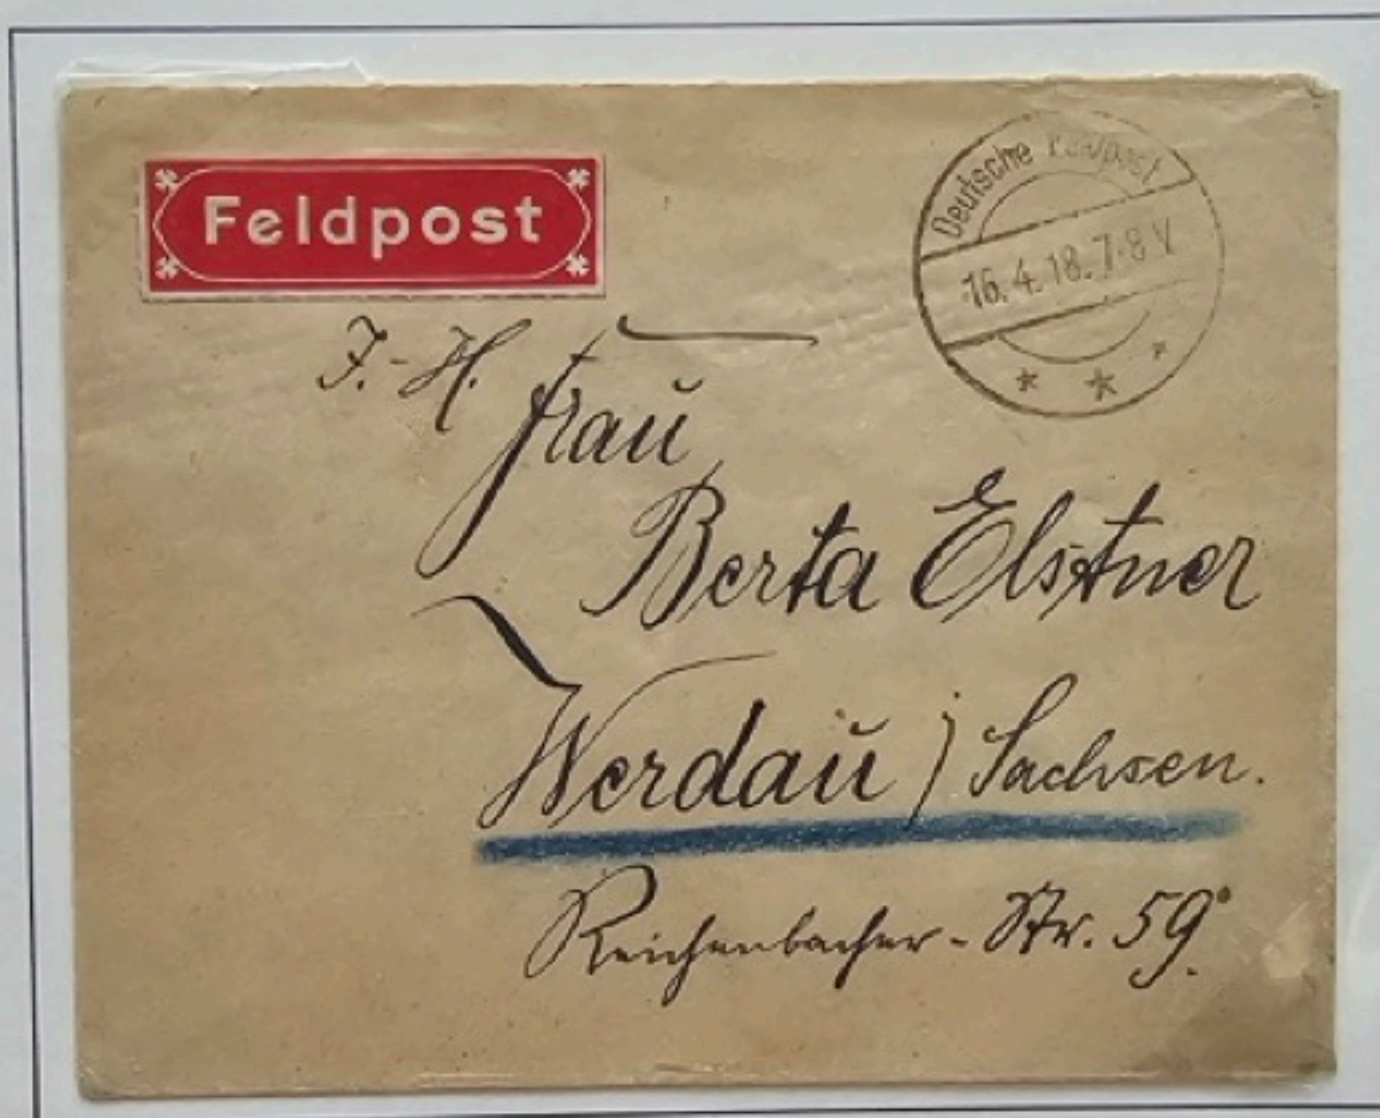 Feldpost
Deutsche Feldpost
16.4.18.7-8 V
J.-H.
Frau
Berta Elstner
Werdau / Sachsen.
Reichenbacher-Str. 59.